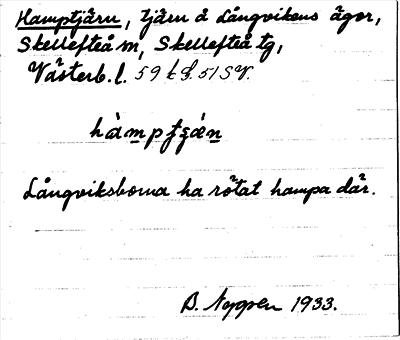 Hamptjärn, tjärn å Långvikens ägor,
Skellefteå m, Skellefteå tg,
Västerb. l. 59 k S. 51 SV.
hàmptjǽn
Långviksborna ha rötat hampa där.
B. Nyppen 1933.